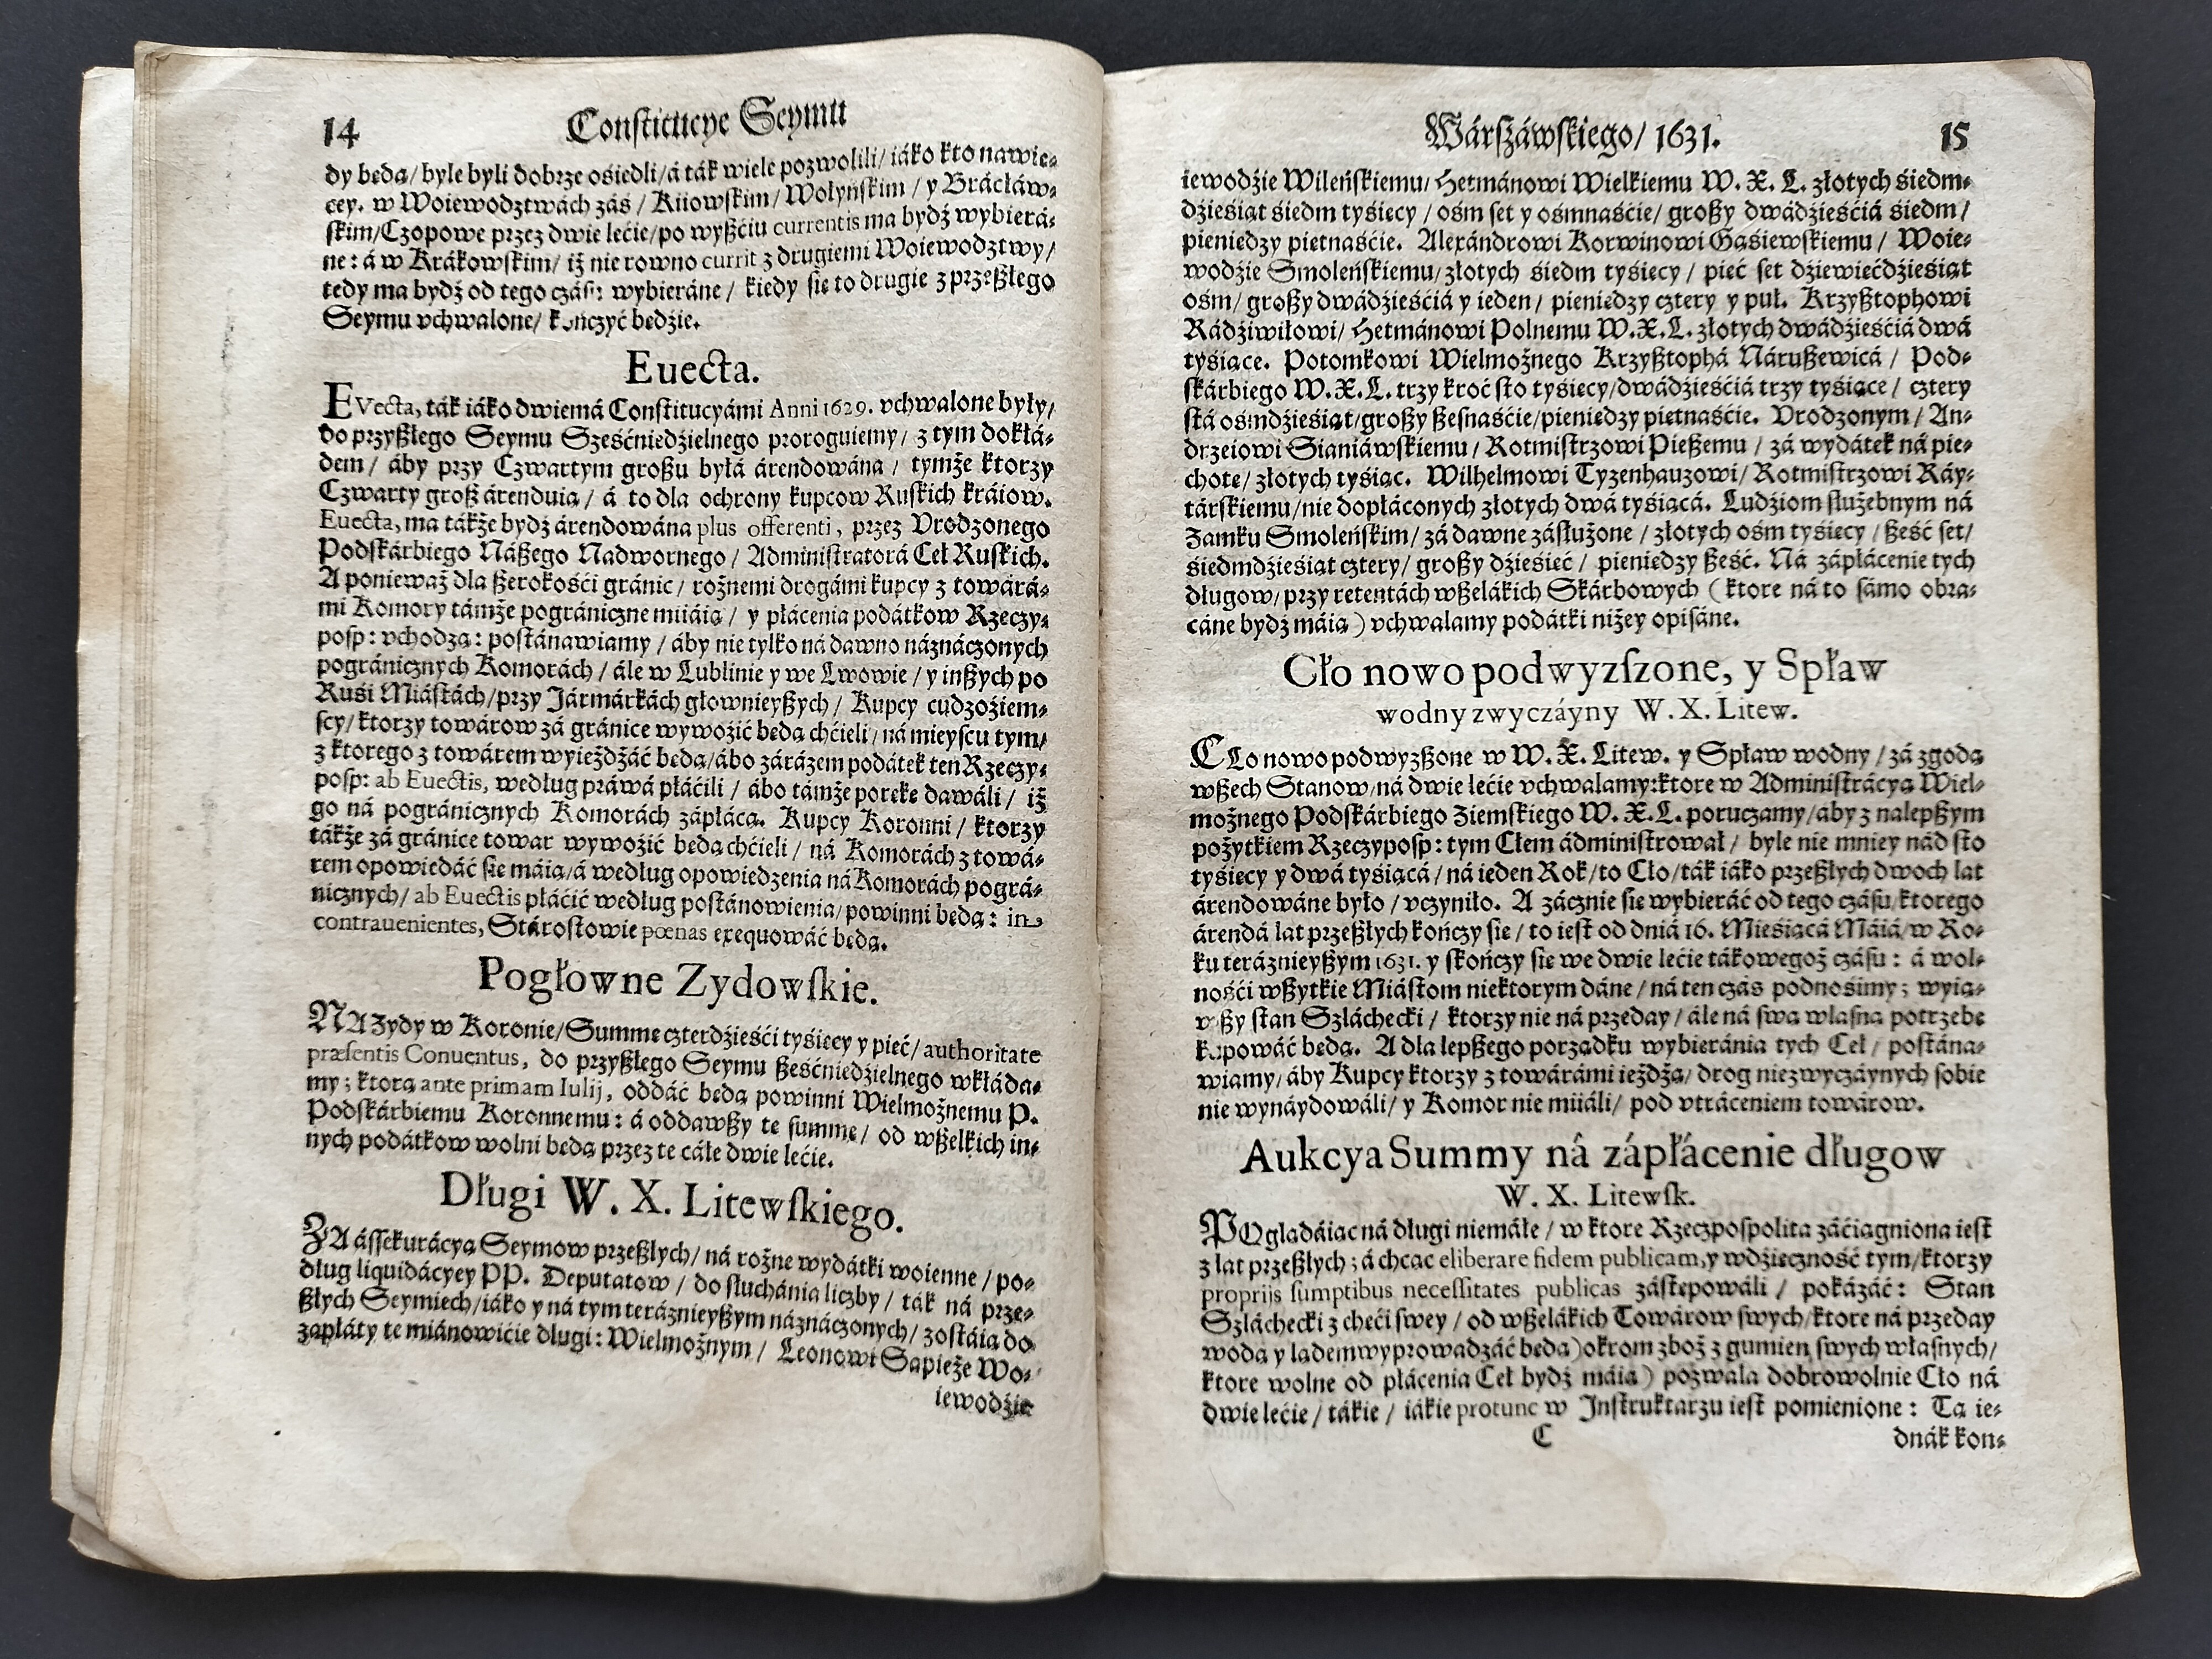 14 Constitucye Seymu
dy będą/ byle byli dobrze osiedli/ á ták wiele pozwolili/ iáko kto nawie-
cey. w Woiewodztwách záś/ Kiiowskim/ Wołyńskim/ y Brácłáw-
skim/ Czopowe przez dwie lećie/ po wyßćiu currentis ma bydź wybierá-
ne: á w Krákowskim/ iż nie rowno currit z drugiemi Woiewodztwy/
tedy ma bydź od tego czásu: wybieráne/ kiedy się to drugie z przeßłego
Seymu vchwalone/ kończyć będźie.
Euecta.
EVecta, ták iáko dwiemá Constitucyámi Anni 1629. vchwalone były/
do przyßłego Seymu Sześćniedźielnego proroguiemy/ z tym dokłá-
dem/ áby przy Czwartym großu byłá árendowána/ tymże ktorzy
Czwarty groß árenduią/ á to dla ochrony kupcow Ruskich kráiow.
Euecta, ma tákże bydź árendowána plus offerenti, przez Vrodzonego
Podskárbiego Náßego Nadwornego/ Administratorá Ceł Ruskich.
A ponieważ dla ßerokośći gránic/ rożnemi drogámi kupcy z towárá-
mi Komory támże pográniczne miiáią/ y płácenia podátkow Rzeczy-
posp: vchodzą: postánawiamy/ áby nie tylko ná dawno náznáczonych
pogránicznych Komorách/ ále w Lublinie y we Lwowie/ y inßych po
Ruśi Miástách/ przy Jármárkách głownieyßych/ Kupcy cudzoźiem-
scy/ ktorzy towárow zá gránice wywoźić będą chćieli/ ná mieyscu tym/
z ktorego z towárem wyieżdżáć będą/ ábo zárázem podátek ten Rzeczy-
posp: ab Euectis, według práwá płáćili/ ábo támże porękę dawáli/ iż
go ná pogránicznych Komorách zápłácą. Kupcy Koronni/ ktorzy
tákże zá gránice towar wywoźić będą chćieli/ ná Komorách z towá-
rem opowiedáć się máią/ á według opowiedzenia ná Komorách pográ-
nicznych/ ab Euectis płáćić według postánowienia/ powinni będą: in-
contrauenientes, Stárostowie pœnas exequowáć będą.
Pogłowne Zydowskie.
NA Zydy w Koronie/ Summę czterdźieśći tyśięcy y pięć/ authoritate
præsentis Conuentus, do przyßłego Seymu ßeśćniedźielnego wkłáda-
my; ktorą ante primam Iulij, oddáć będą powinni Wielmożnemu P.
Podskárbiemu Koronnemu: á oddawßy tę summę/ od wßelkich in-
nych podátkow wolni będą przez te cáłe dwie lećie.
Długi W. X. Litewskiego.
ZA ássekurácyą Seymow przeßłych/ ná rożne wydátki woienne/ po-
dług liquidácyey PP. Deputatow/ do słuchánia liczby/ ták ná prze-
ßłych Seymiech/ iáko y ná tym teráznieyßym náznáczonych/ zostáią do
zapłáty te miánowićie długi: Wielmożnym/ Leonowi Sapieże Wo-
iewodźie
Wárszáwskiego/ 1631. 15
iewodźie Wileńskiemu/ Hetmánowi Wielkiemu W. X. L. złotych śiedm-
dźieśiąt śiedm tyśięcy/ ośm set y ośmnaśćie/ großy dwádźieśćiá śiedm/
pieniędzy piętnaśćie. Alexándrowi Korwinowi Gąśiewskiemu/ Woie-
wodźie Smoleńskiemu/ złotych śiedm tyśięcy/ pięć set dźiewięćdźieśiąt
ośm/ großy dwádźieśćiá y ieden/ pieniędzy cztery y puł. Krzyßtophowi
Rádźiwiłowi/ Hetmánowi Polnemu W. X. L. złotych dwádźieśćiá dwá
tyśiące. Potomkowi Wielmożnego Krzyßtophá Nárußewicá/ Pod-
skárbiego W. X. L. trzy kroć sto tyśięcy/ dwádźieśćiá trzy tyśiące/ cztery
stá ośmdźieśiąt/ großy ßesnaśćie/ pieniędzy piętnaśćie. Vrodzonym/ An-
drzeiowi Sianiáwskiemu/ Rotmistrzowi Pießemu/ zá wydátek ná pie-
chotę/ złotych tyśiąc. Wilhelmowi Tyzenhauzowi/ Rotmistrzowi Ráy-
társkiemu/ nie dopłáconych złotych dwá tyśiącá. Ludźiom służebnym ná
Zamku Smoleńskim/ zá dawne zásłużone/ złotych ośm tyśięcy/ ßeść set/
śiedmdźieśiąt cztery/ großy dźieśięć/ pieniędzy ßeść. Ná zápłácenie tych
długow/ przy retentách wßelákich Skárbowych (ktore ná to sámo obra-
cáne bydź máią) vchwalamy podátki niżey opisáne.
Cło nowo podwyzszone, y Spław
wodny zwyczáyny W. X. Litew.
CŁo nowo podwyzßone w W. X. Litew. y Spław wodny/ zá zgodą
wßech Stanow/ ná dwie lećie vchwalamy: ktore w Administrácyą Wiel-
możnego Podskárbiego Ziemskiego W. X. L. poruczamy/ aby z nalepßym
pożytkiem Rzeczyposp: tym Cłem ádministrował/ byle nie mniey nád sto
tyśięcy y dwá tyśiącá/ ná ieden Rok/ to Cło/ ták iáko przeßłych dwoch lat
árendowáne było/ vczyniło. A zácznie się wybieráć od tego czásu/ ktorego
árendá lat przeßłych kończy się/ to iest od dniá 16. Mieśiącá Máiá/ w Ro-
ku teráznieyßym 1631. y skończy się we dwie lećie tákowegoż czásu: á wol-
nośći wßytkie Miástom niektorym dáne/ ná ten czás podnośimy; wyią-
wßy stan Szláchecki/ ktorzy nie ná przeday/ ále ná swą własną potrzebę
kupowáć będą. A dla lepßego porządku wybieránia tych Ceł/ postána-
wiamy/ áby Kupcy ktorzy z towárámi ieżdżą/ drog niezwyczáynych sobie
nie wynáydowáli/ y Komor nie miiáli/ pod vtráceniem towárow.
Aukcya Summy ná zápłácenie długow
W. X. Litewsk.
POglądáiąc ná długi niemáłe/ w ktore Rzeczpospolita záćiągniona iest
z lat przeßłych; á chcąc eliberare fidem publicam, y wdźięczność tym/ ktorzy
proprijs sumptibus necessitates publicas zástępowáli/ pokázáć: Stan
Szláchecki z chęći swey/ od wßelákich Towárow swych/ ktore ná przeday
wodą y lądem wyprowadzáć będą) okrom zboż z gumien swych własnych/
ktore wolne od płácenia Ceł bydź máią) pozwala dobrowolnie Cło ná
dwie lećie/ tákie/ iákie protunc w Instruktarzu iest pomienione: Tą ie-
C dnák kon-